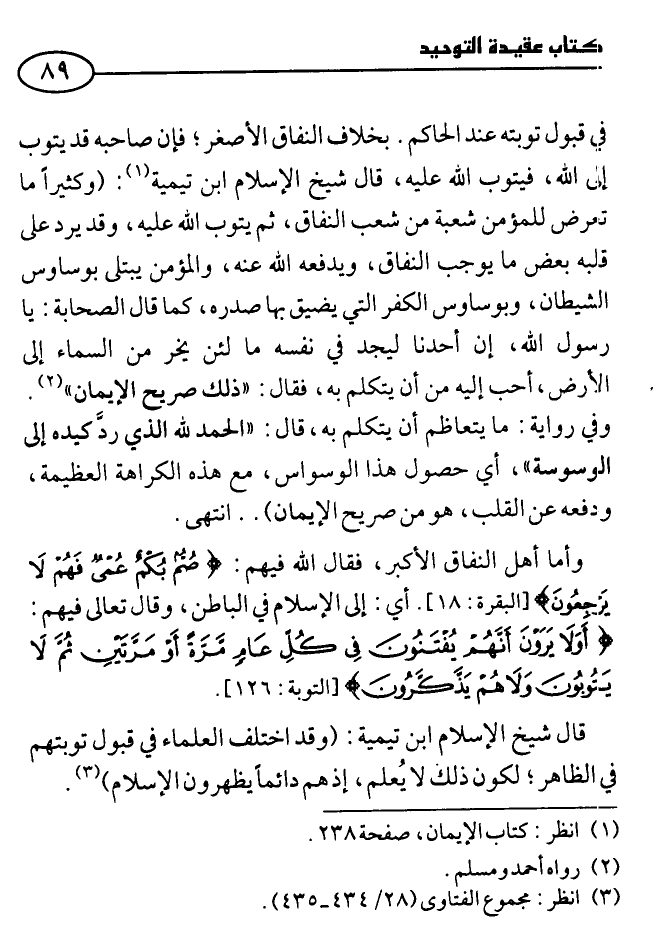 كتاب عقيدة التوحيد
٨٩
في قبول توبته عند الحاكم. بخلاف النفاق الأصغر؛ فإن صاحبه قد يتوب
إلى الله، فيتوب الله عليه، قال شيخ الإسلام ابن تيمية(١): (وكثيراً ما
تعرض للمؤمن شعبة من شعب النفاق، ثم يتوب الله عليه، وقد يرد على
قلبه بعض ما يوجب النفاق، ويدفعه الله عنه، والمؤمن يبتلى بوساوس
الشيطان، وبوساوس الكفر التي يضيق بها صدره، كما قال الصحابة: يا
رسول الله، إن أحدنا ليجد في نفسه ما لئن يخر من السماء إلى
الأرض، أحب إليه من أن يتكلم به، فقال: «ذلك صريح الإيمان»(٢).
وفي رواية: ما يتعاظم أن يتكلم به، قال: «الحمد لله الذي ردَّ كيده إلى
الوسوسة»، أي حصول هذا الوسواس، مع هذه الكراهة العظيمة،
ودفعه عن القلب، هو من صريح الإيمان).. انتهى.
وأما أهل النفاق الأكبر، فقال الله فيهم: ﴿صُمٌّۢ بُكْمٌ عُمْىٌ فَهُمْ لَا
يَرْجِعُونَ﴾ [البقرة: ١٨]. أي: إلى الإسلام في الباطن، وقال تعالى فيهم:
﴿أَوَلَا يَرَوْنَ أَنَّهُمْ يُفْتَنُونَ فِى كُلِّ عَامٍ مَّرَّةً أَوْ مَرَّتَيْنِ ثُمَّ لَا
يَتُوبُونَ وَلَا هُمْ يَذَّكَّرُونَ﴾ [التوبة: ١٢٦].
قال شيخ الإسلام ابن تيمية: (وقد اختلف العلماء في قبول توبتهم
في الظاهر؛ لكون ذلك لا يُعلم، إذ هم دائماً يظهرون الإسلام)(٣).
(١) انظر: كتاب الإيمان، صفحة ٢٣٨.
(٢) رواه أحمد ومسلم.
(٣) انظر: مجموع الفتاوى (٢٨/ ٤٣٤_٤٣٥).